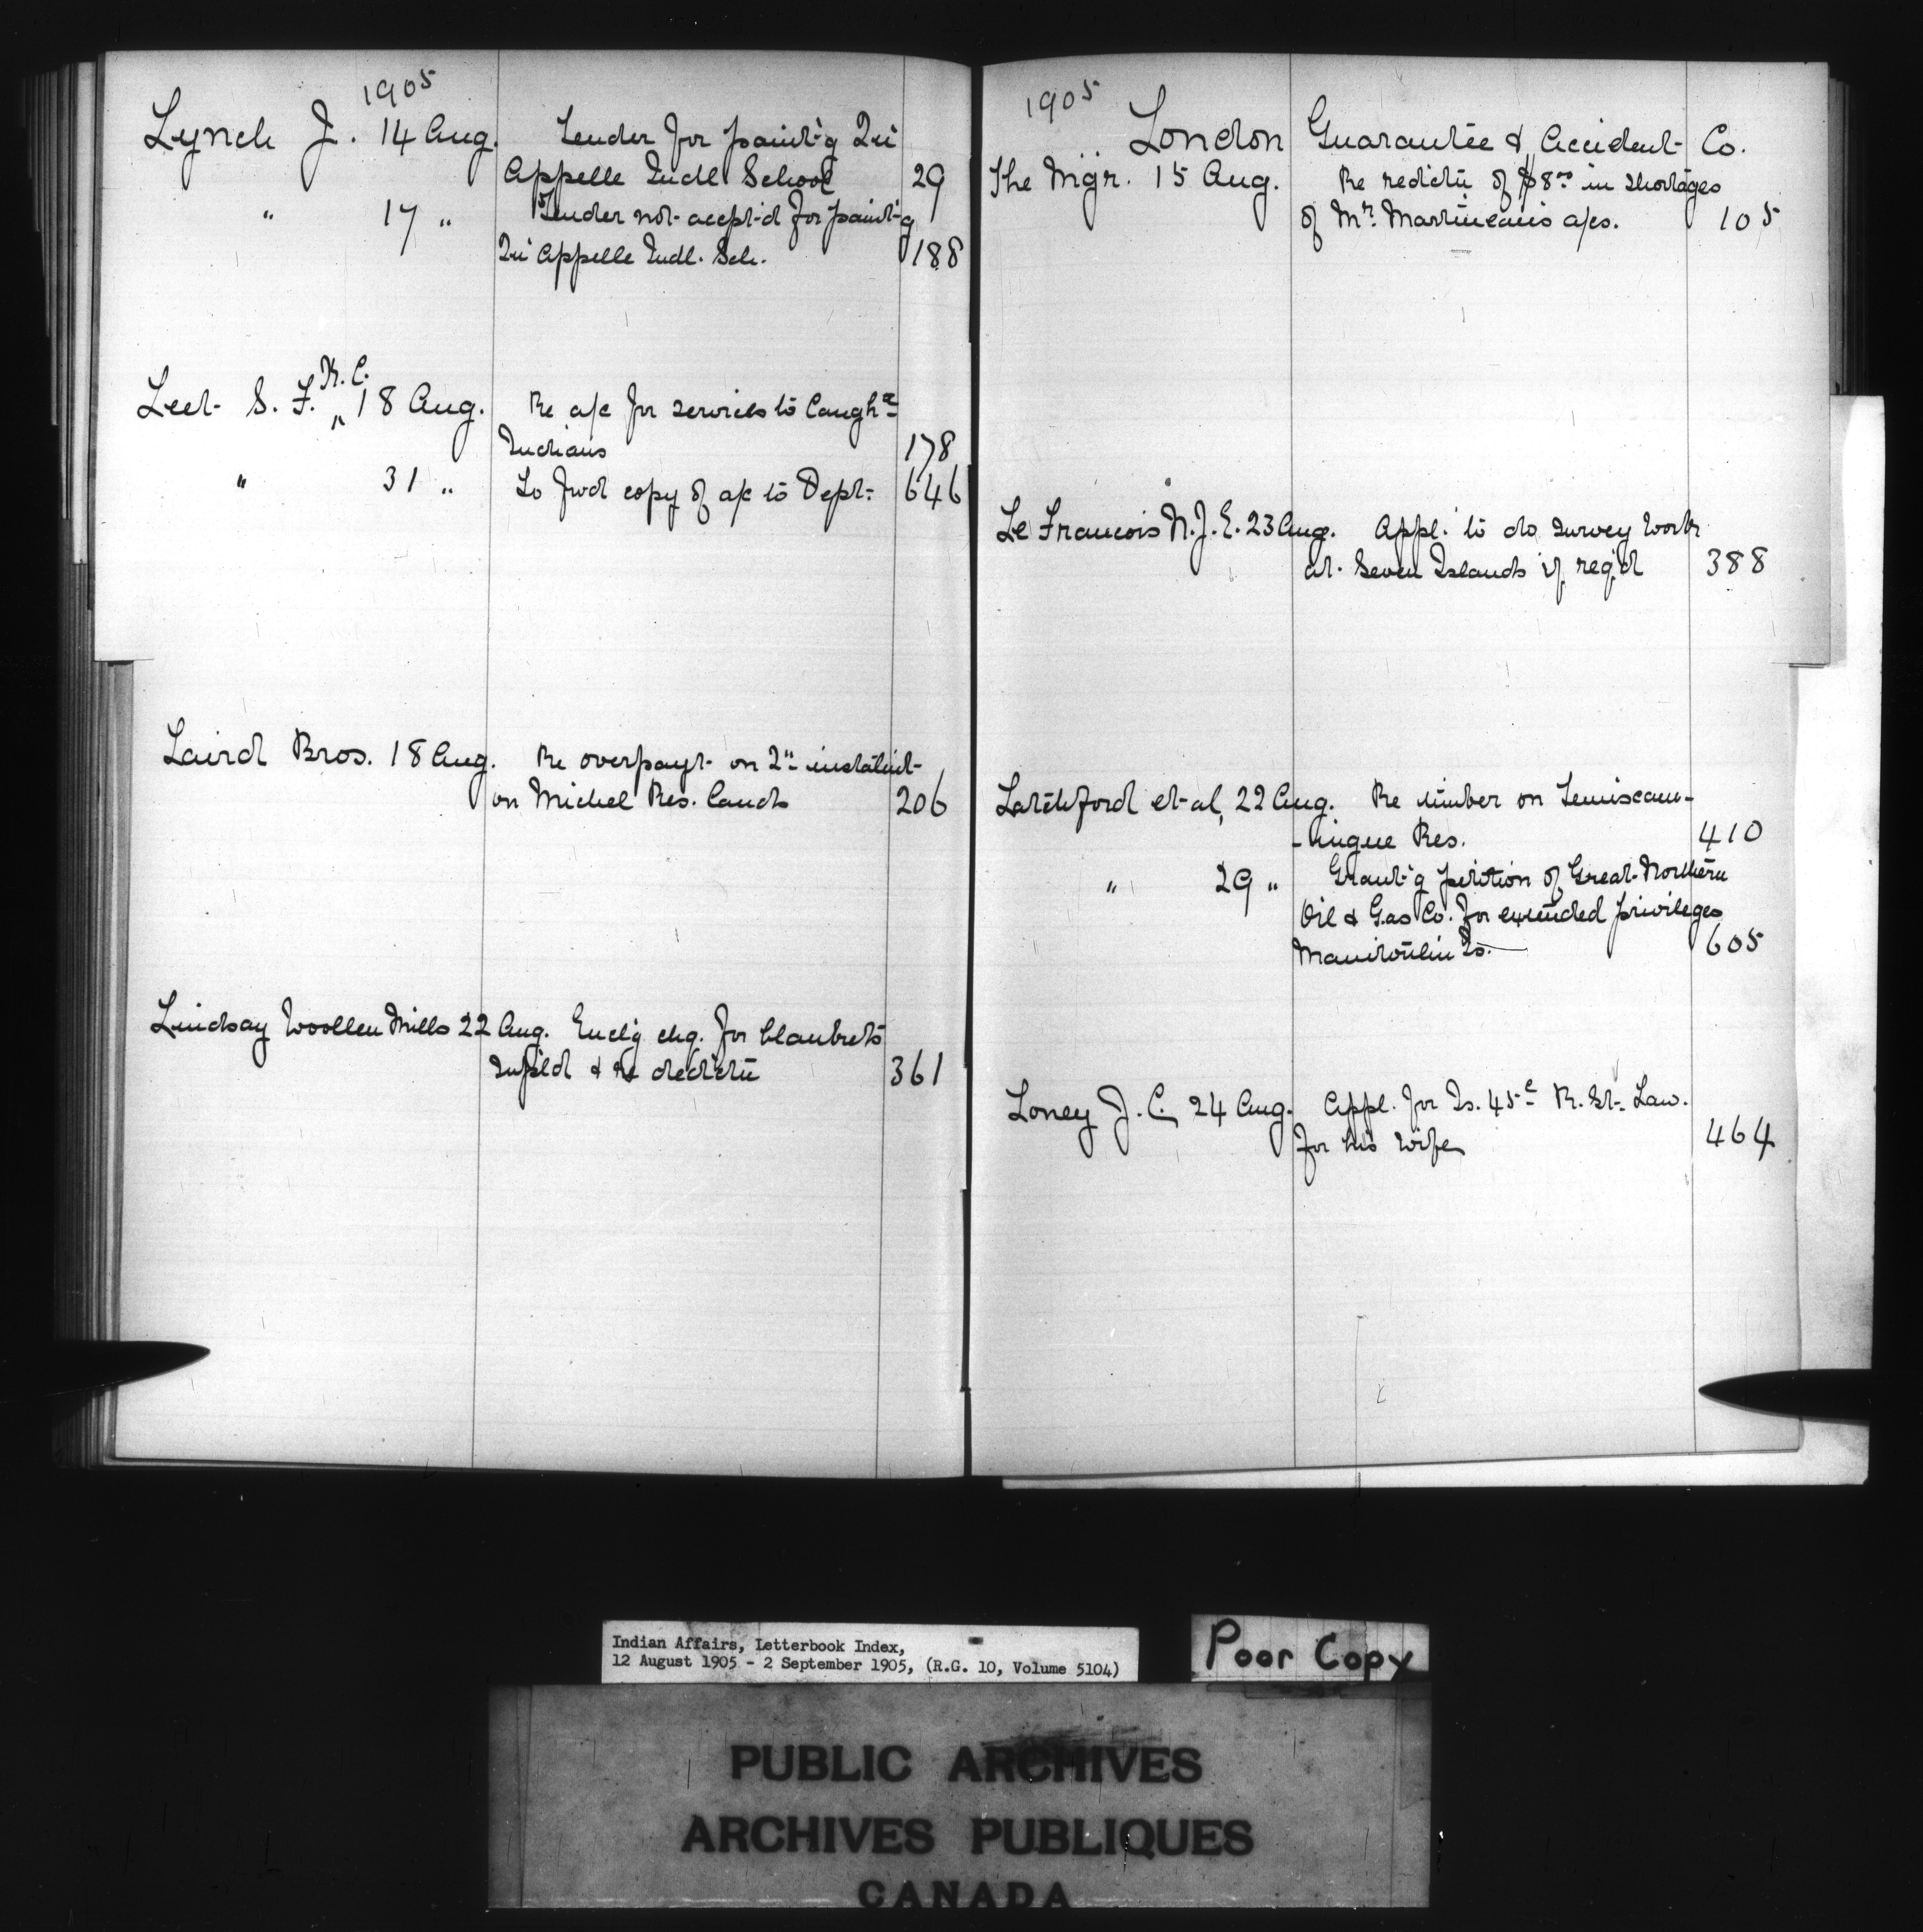 1905
Lynch J. 14 Aug. Tender for paint'g Qu'
Appelle Indl School 29
" 17 " Tender not accept'd for paint'g
Qu'Appelle Indl. Sch. 188
K.C.
Leet S. F. " 18 Aug. Re a/c for services to Caugh.
Indians 178
" 31 " To fwd copy of a/c to Dept. 646
Laird Bros. 18 Aug. Re overpayt on 2nd instalmt
on Michel Res. lands 206
Lindsay Woollen Mills 22 Aug. Encl'g chq. for blankets
suppl'd & re ded'ctn 361
1905
London Guarantee & Accident Co.
The Mgr. 15 Aug. Re red'ctn of $8.00 in shortages
of Mr. Martineau's a/cs. 105
Le Francois N. J. E. 23 Aug. Appl. to do survey work
at Seven Islands if req'd 388
Latchford et al, 22 Aug. Re timber on Temiscam-
-ingue Res. 410
" 29 " Grant'g petition of Great Northern
Oil & Gas Co. for extended privileges
Manitoulin Is. 605
Loney J. C. 24 Aug. Appl. for Is. 45c R. St. Law.
for his wife 464
Indian Affairs, Letterbook Index,
12 August 1905 - 2 September 1905, (R.G. 10, Volume 5104)
Poor Copy
PUBLIC ARCHIVES
ARCHIVES PUBLIQUES
CANADA